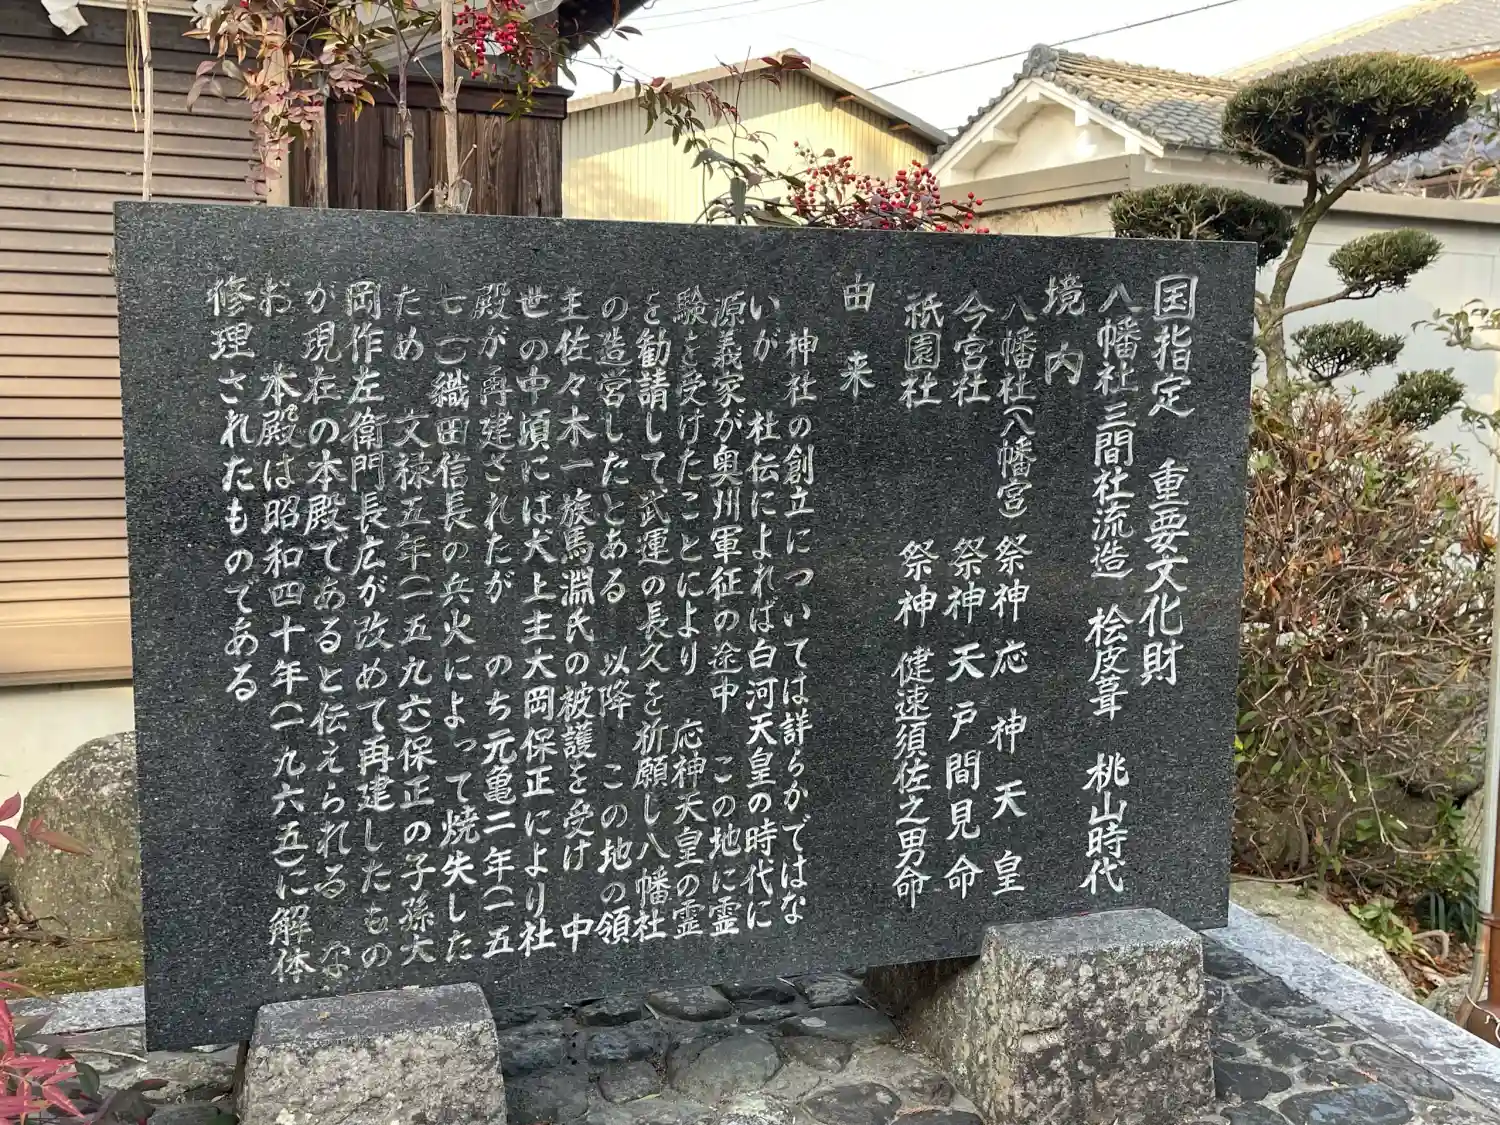 国指定　重要文化財
八幡社三間社流造　桧皮葺　桃山時代
境内
八幡社（八幡宮）　祭神　応神天皇
今宮社　祭神　天戸間見命
祇園社　祭神　健速須佐之男命
由来
神社の創立については詳らかではな
いが　社伝によれば白河天皇の時代に
源義家が奥州軍征の途中　この地に霊
験を受けたことにより　応神天皇の霊
を勧請して武運の長久を祈願し八幡社
の造営したとある　以降　この地の領
主佐々木一族馬淵氏の被護を受け　中
世の中頃には犬上主大岡保正により社
殿が再建されたが　のち元亀二年（一五
七一）織田信長の兵火によって焼失した
ため　文禄五年（一五九六）保正の子孫大
岡作左衛門長広が改めて再建したもの
が現在の本殿であると伝えられる　な
お　本殿は昭和四十年（一九六五）に解体
修理されたものである